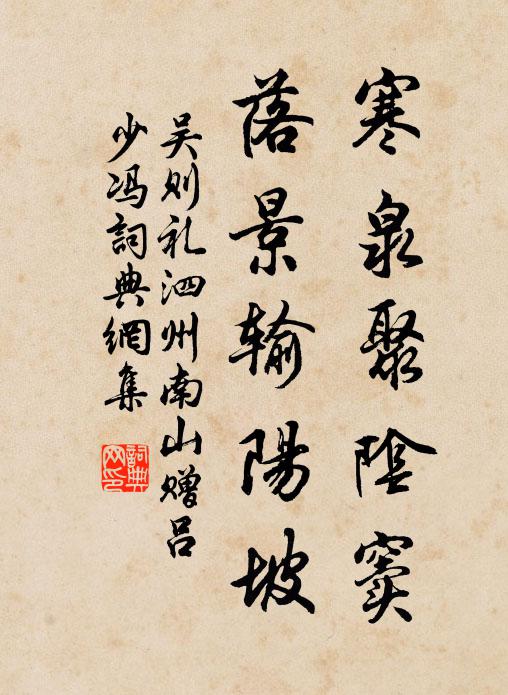 寒泉聚陰竇
落景输陽坡
吴则礼泗州南山赠吕
少冯詞典網集
詞典
网印